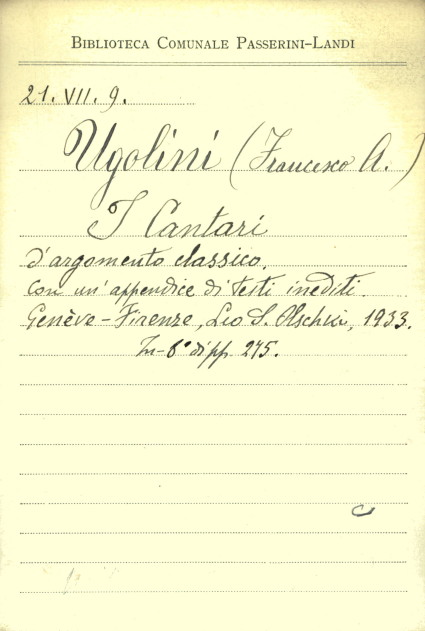 BIBLIOTECA COMUNALE PASSERINI-LANDI
21. VII. 9.
Ugolini (Francesco A.)
I Cantari
d'argomento classico,
con un'appendice di testi inediti.
Genève - Firenze, Leo S. Olschki, 1933.
In-8° di pp. 275.